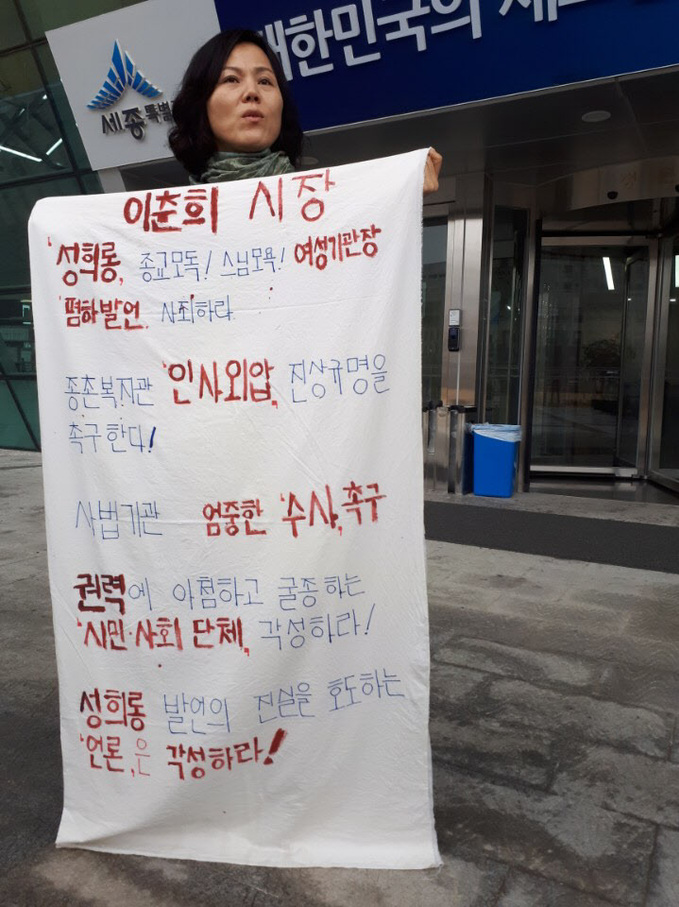 대한민국의
세종특별
이춘희 시장
'성희롱, 종교모독! 스님모욕! 여성기관장
'폄하발언, 사죄하라
종촌복지관 '인사외압, 진상규명을
촉구한다!
사법기관 엄중한 '수사,촉구
권력에 아첨하고 굴종하는
'시민·사회 단체, 각성하라!
성희롱 발언의 진실을 호도하는
'언론,은 각성하라!